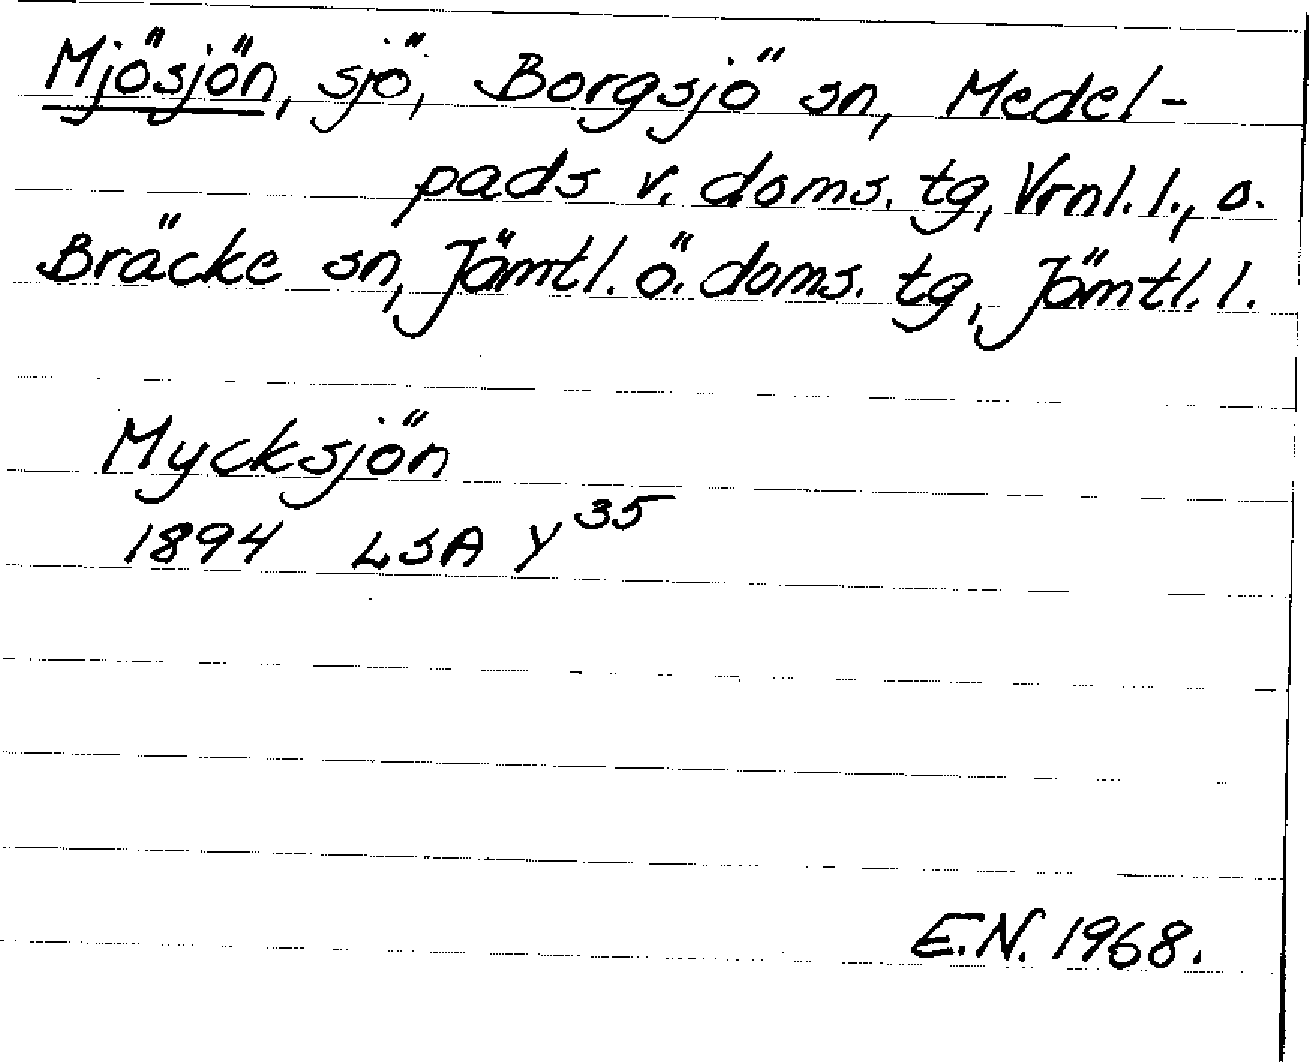 Mjösjön, sjö, Borgsjö sn, Medel-
pads v. doms. tg, Vrnl. l., o.
Bräcke sn, Jämtl. ö. doms. tg, Jämtl. l.
Mycksjön
1894 LSA Y 35
E.N. 1968.